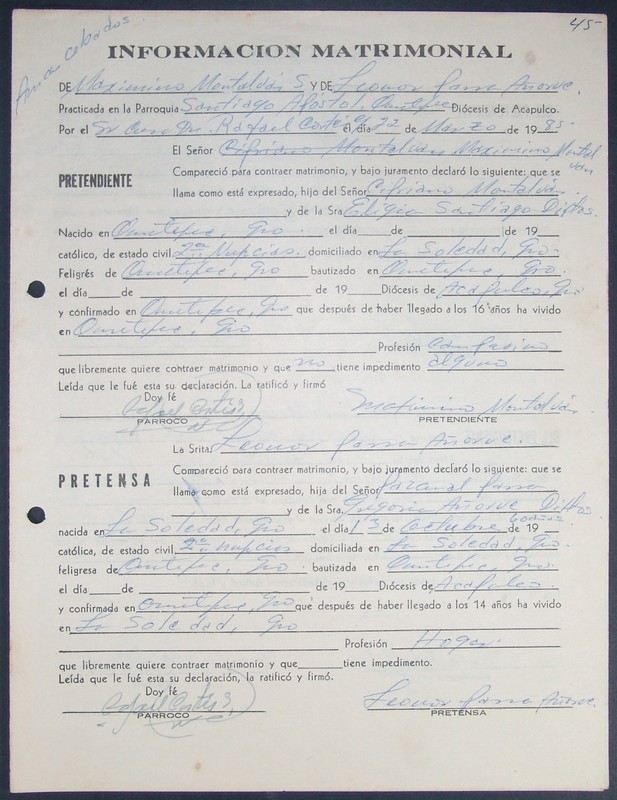 45-
INFORMACION MATRIMONIAL
DE Maximino Montalván S. Y DE Leonor Parra Añorve.
Practicada en la Parroquia Santiago Apóstol, Ometepec Diócesis de Acapulco.
Por el Sr Cura Dn. Rafael Cortés el día 22 de Marzo de 1985-
El Señor Cipriano Montalván Maximino Montalván
PRETENDIENTE
Compareció para contraer matrimonio, y bajo juramento declaró lo siguiente: que se
llama como está expresado, hijo del Señor Cipriano Montalván
y de la Sra Eligia Santiago Diftos.
Nacido en Ometepec, Gro. el día de de 19
católico, de estado civil 2as Nupcias. domiciliado en La Soledad, Gro.
Feligrés de Ometepec, Gro bautizado en Ometepec, Gro.
el día de de 19 Diócesis de Acapulco, Gro
y confirmado en Ometepec, Gro que después de haber llegado a los 16 años ha vivido
en Ometepec, Gro
Profesión Campesino
que libremente quiere contraer matrimonio y que no tiene impedimento alguno
Leída que le fué esta su declaración. La ratificó y firmó
Doy fé
Rafael Cortés
Maximino Montalván
PARROCO PRETENDIENTE
La Srita. Leonor Parra Añorve.
PRETENSA
Compareció para contraer matrimonio, y bajo juramento declaró lo siguiente: que se
llama como está expresado, hija del Señor Pascual Parra
y de la Sra. Gregoria Añorve Diftos.
nacida en La Soledad, Gro el día 13 de Octubre de 19 60 años
católica, de estado civil 2as Nupcias domiciliada en La Soledad, Gro.
feligresa de Ometepec, Gro. bautizada en Ometepec, Gro.
el día de de 19 Diócesis de Acapulco.
y confirmada en Ometepec, Gro que después de haber llegado a los 14 años ha vivido
en La Soledad, Gro
Profesión Hogar.
que libremente quiere contraer matrimonio y que tiene impedimento.
Leída que le fué esta su declaración, la ratificó y firmó.
Doy fé
Rafael Cortés
Leonor Parra Añorve.
PARROCO PRETENSA